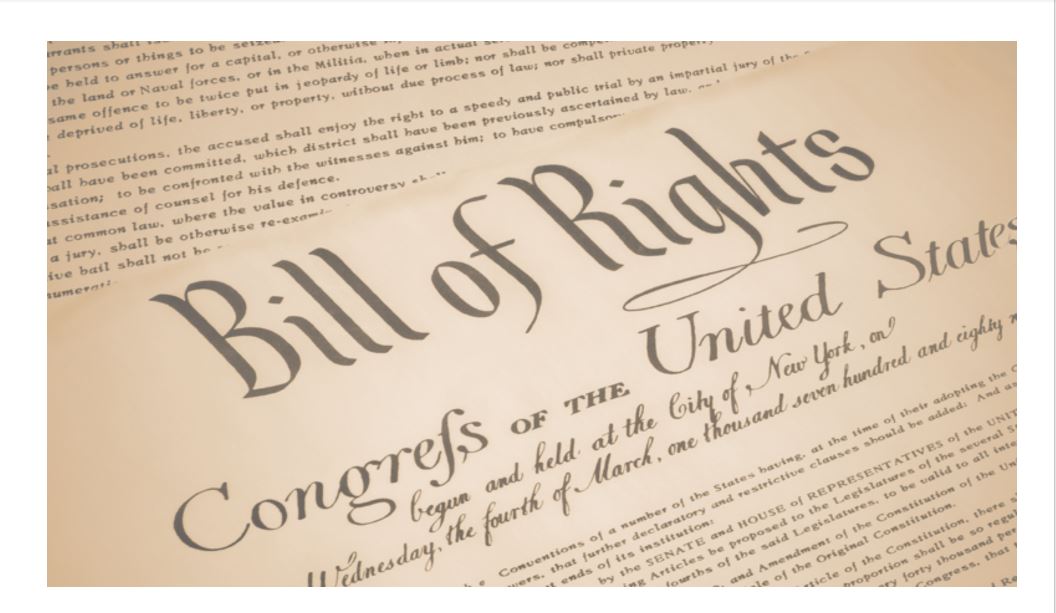 rrants shall
persons or things to be seized
be held to answer for a capital, or otherwise
the land or Naval forces, or in the Militia, when in actual
same offence to be twice put in jeopardy of life or limb; nor shall be
deprived of life, liberty, or property, without due process of law; nor shall private property
al prosecutions, the accused shall enjoy the right to a speedy and public trial by an impartial jury of the
all have been committed, which district shall have been previously ascertained by law,
sation; to be confronted with the witnesses against him; to have compulsory
ssistance of counsel for his defence.
t common law, where the value in controversy
a jury, shall be otherwise
ive bail shall not be
Bill of Rights
Congreſs OF THE United States
begun and held at the City of New York, on
Wednesday, the fourth of March, one thousand seven hundred and eighty
Conventions of a number of the States having, at the time of their adopting the
wers, that further declaratory and restrictive clauses should be added: And as
t ends of its institution:
by the SENATE and HOUSE of REPRESENTATIVES of the UNIT
ing Articles be proposed to the Legislatures of the several
fourths of the said Legislatures, to be valid to all
and Amendment of the Constitution of the Un
le of the Original Constitution.
rticle of the Constitution, there
proportion shall be so regu
ry forty thousand per
Congress, that